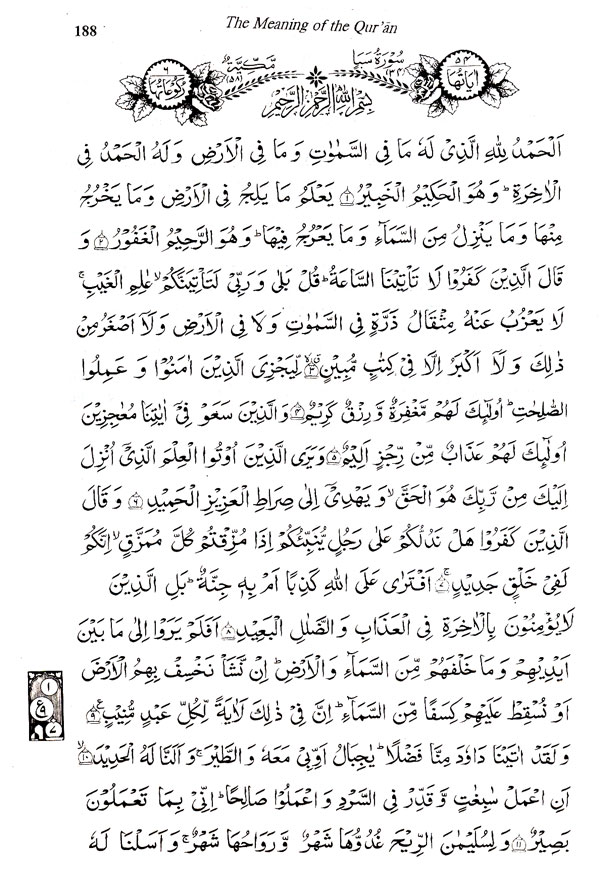 188
The Meaning of the Qur'ān
۵۴ اٰيَاتُهَا
سُوْرَةُ سَبَا (۳۴)
مَكِّيَّةٌ (۵۸)
۶ رُكُوْعَاتُهَا
بِسْمِ اللّٰهِ الرَّحْمٰنِ الرَّحِيْمِ
اَلْحَمْدُ لِلّٰهِ الَّذِىْ لَهٗ مَا فِى السَّمٰوٰتِ وَ مَا فِى الْاَرْضِ وَ لَهُ الْحَمْدُ فِى
الْاٰخِرَةِ ؕ وَ هُوَ الْحَكِيْمُ الْخَبِيْرُ ۝۱ يَعْلَمُ مَا يَلِجُ فِى الْاَرْضِ وَ مَا يَخْرُجُ
مِنْهَا وَ مَا يَنْزِلُ مِنَ السَّمَآءِ وَ مَا يَعْرُجُ فِيْهَا ؕ وَ هُوَ الرَّحِيْمُ الْغَفُوْرُ ۝۲ وَ
قَالَ الَّذِيْنَ كَفَرُوْا لَا تَاْتِيْنَا السَّاعَةُ ؕ قُلْ بَلٰى وَ رَبِّىْ لَتَاْتِيَنَّكُمْ ۙ عٰلِمِ الْغَيْبِ ۚ
لَا يَعْزُبُ عَنْهُ مِثْقَالُ ذَرَّةٍ فِى السَّمٰوٰتِ وَ لَا فِى الْاَرْضِ وَ لَاۤ اَصْغَرُ مِنْ
ذٰلِكَ وَ لَاۤ اَكْبَرُ اِلَّا فِىْ كِتٰبٍ مُّبِيْنٍ ۝۳ لِّيَجْزِىَ الَّذِيْنَ اٰمَنُوْا وَ عَمِلُوا
الصّٰلِحٰتِ ؕ اُولٰٓئِكَ لَهُمْ مَّغْفِرَةٌ وَّ رِزْقٌ كَرِيْمٌ ۝۴ وَ الَّذِيْنَ سَعَوْ فِىْۤ اٰيٰتِنَا مُعٰجِزِيْنَ
اُولٰٓئِكَ لَهُمْ عَذَابٌ مِّنْ رِّجْزٍ اَلِيْمٌ ۝۵ وَ يَرَى الَّذِيْنَ اُوْتُوا الْعِلْمَ الَّذِىْۤ اُنْزِلَ
اِلَيْكَ مِنْ رَّبِّكَ هُوَ الْحَقَّ ۙ وَ يَهْدِىْۤ اِلٰى صِرَاطِ الْعَزِيْزِ الْحَمِيْدِ ۝۶ وَ قَالَ
الَّذِيْنَ كَفَرُوْا هَلْ نَدُلُّكُمْ عَلٰى رَجُلٍ يُّنَبِّئُكُمْ اِذَا مُزِّقْتُمْ كُلَّ مُمَزَّقٍ ۙ اِنَّكُمْ
لَفِىْ خَلْقٍ جَدِيْدٍ ۝۷ اَفْتَرٰى عَلَى اللّٰهِ كَذِبًا اَمْ بِهٖ جِنَّةٌ ؕ بَلِ الَّذِيْنَ
لَا يُؤْمِنُوْنَ بِالْاٰخِرَةِ فِى الْعَذَابِ وَ الضَّلٰلِ الْبَعِيْدِ ۝۸ اَفَلَمْ يَرَوْا اِلٰى مَا بَيْنَ
اَيْدِيْهِمْ وَ مَا خَلْفَهُمْ مِّنَ السَّمَآءِ وَ الْاَرْضِ ؕ اِنْ نَّشَاْ نَخْسِفْ بِهِمُ الْاَرْضَ
اَوْ نُسْقِطْ عَلَيْهِمْ كِسَفًا مِّنَ السَّمَآءِ ؕ اِنَّ فِىْ ذٰلِكَ لَاٰيَةً لِّكُلِّ عَبْدٍ مُّنِيْبٍ ۝۹
۱ ع ۹ ۷
وَ لَقَدْ اٰتَيْنَا دَاوٗدَ مِنَّا فَضْلًا ؕ يٰجِبَالُ اَوِّبِىْ مَعَهٗ وَ الطَّيْرَ ۚ وَ اَلَنَّا لَهُ الْحَدِيْدَ ۝۱۰
اَنِ اعْمَلْ سٰبِغٰتٍ وَّ قَدِّرْ فِى السَّرْدِ وَ اعْمَلُوْا صَالِحًا ؕ اِنِّىْ بِمَا تَعْمَلُوْنَ
بَصِيْرٌ ۝۱۱ وَ لِسُلَيْمٰنَ الرِّيْحَ غُدُوُّهَا شَهْرٌ وَّ رَوَاحُهَا شَهْرٌ ۚ وَ اَسَلْنَا لَهٗ